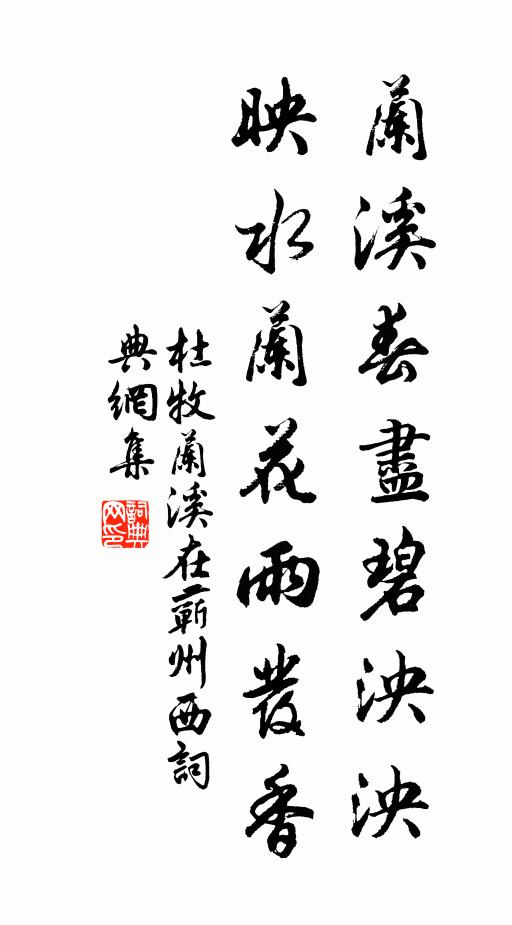 蘭溪春盡碧泱泱
映水蘭花雨發香
杜牧蘭溪在蘄州西詞
典網集
詞典網印